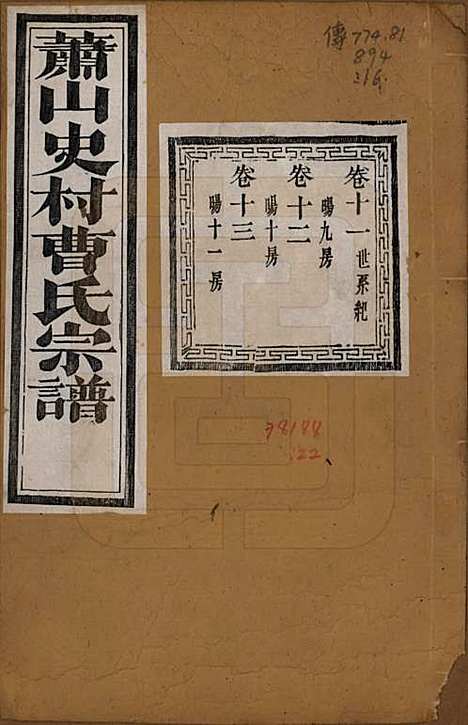 蕭山史村曹氏宗譜
卷十一 世系紀
暘九房
卷十二
暘十房
卷十三
暘十一房
傳 774.81
894